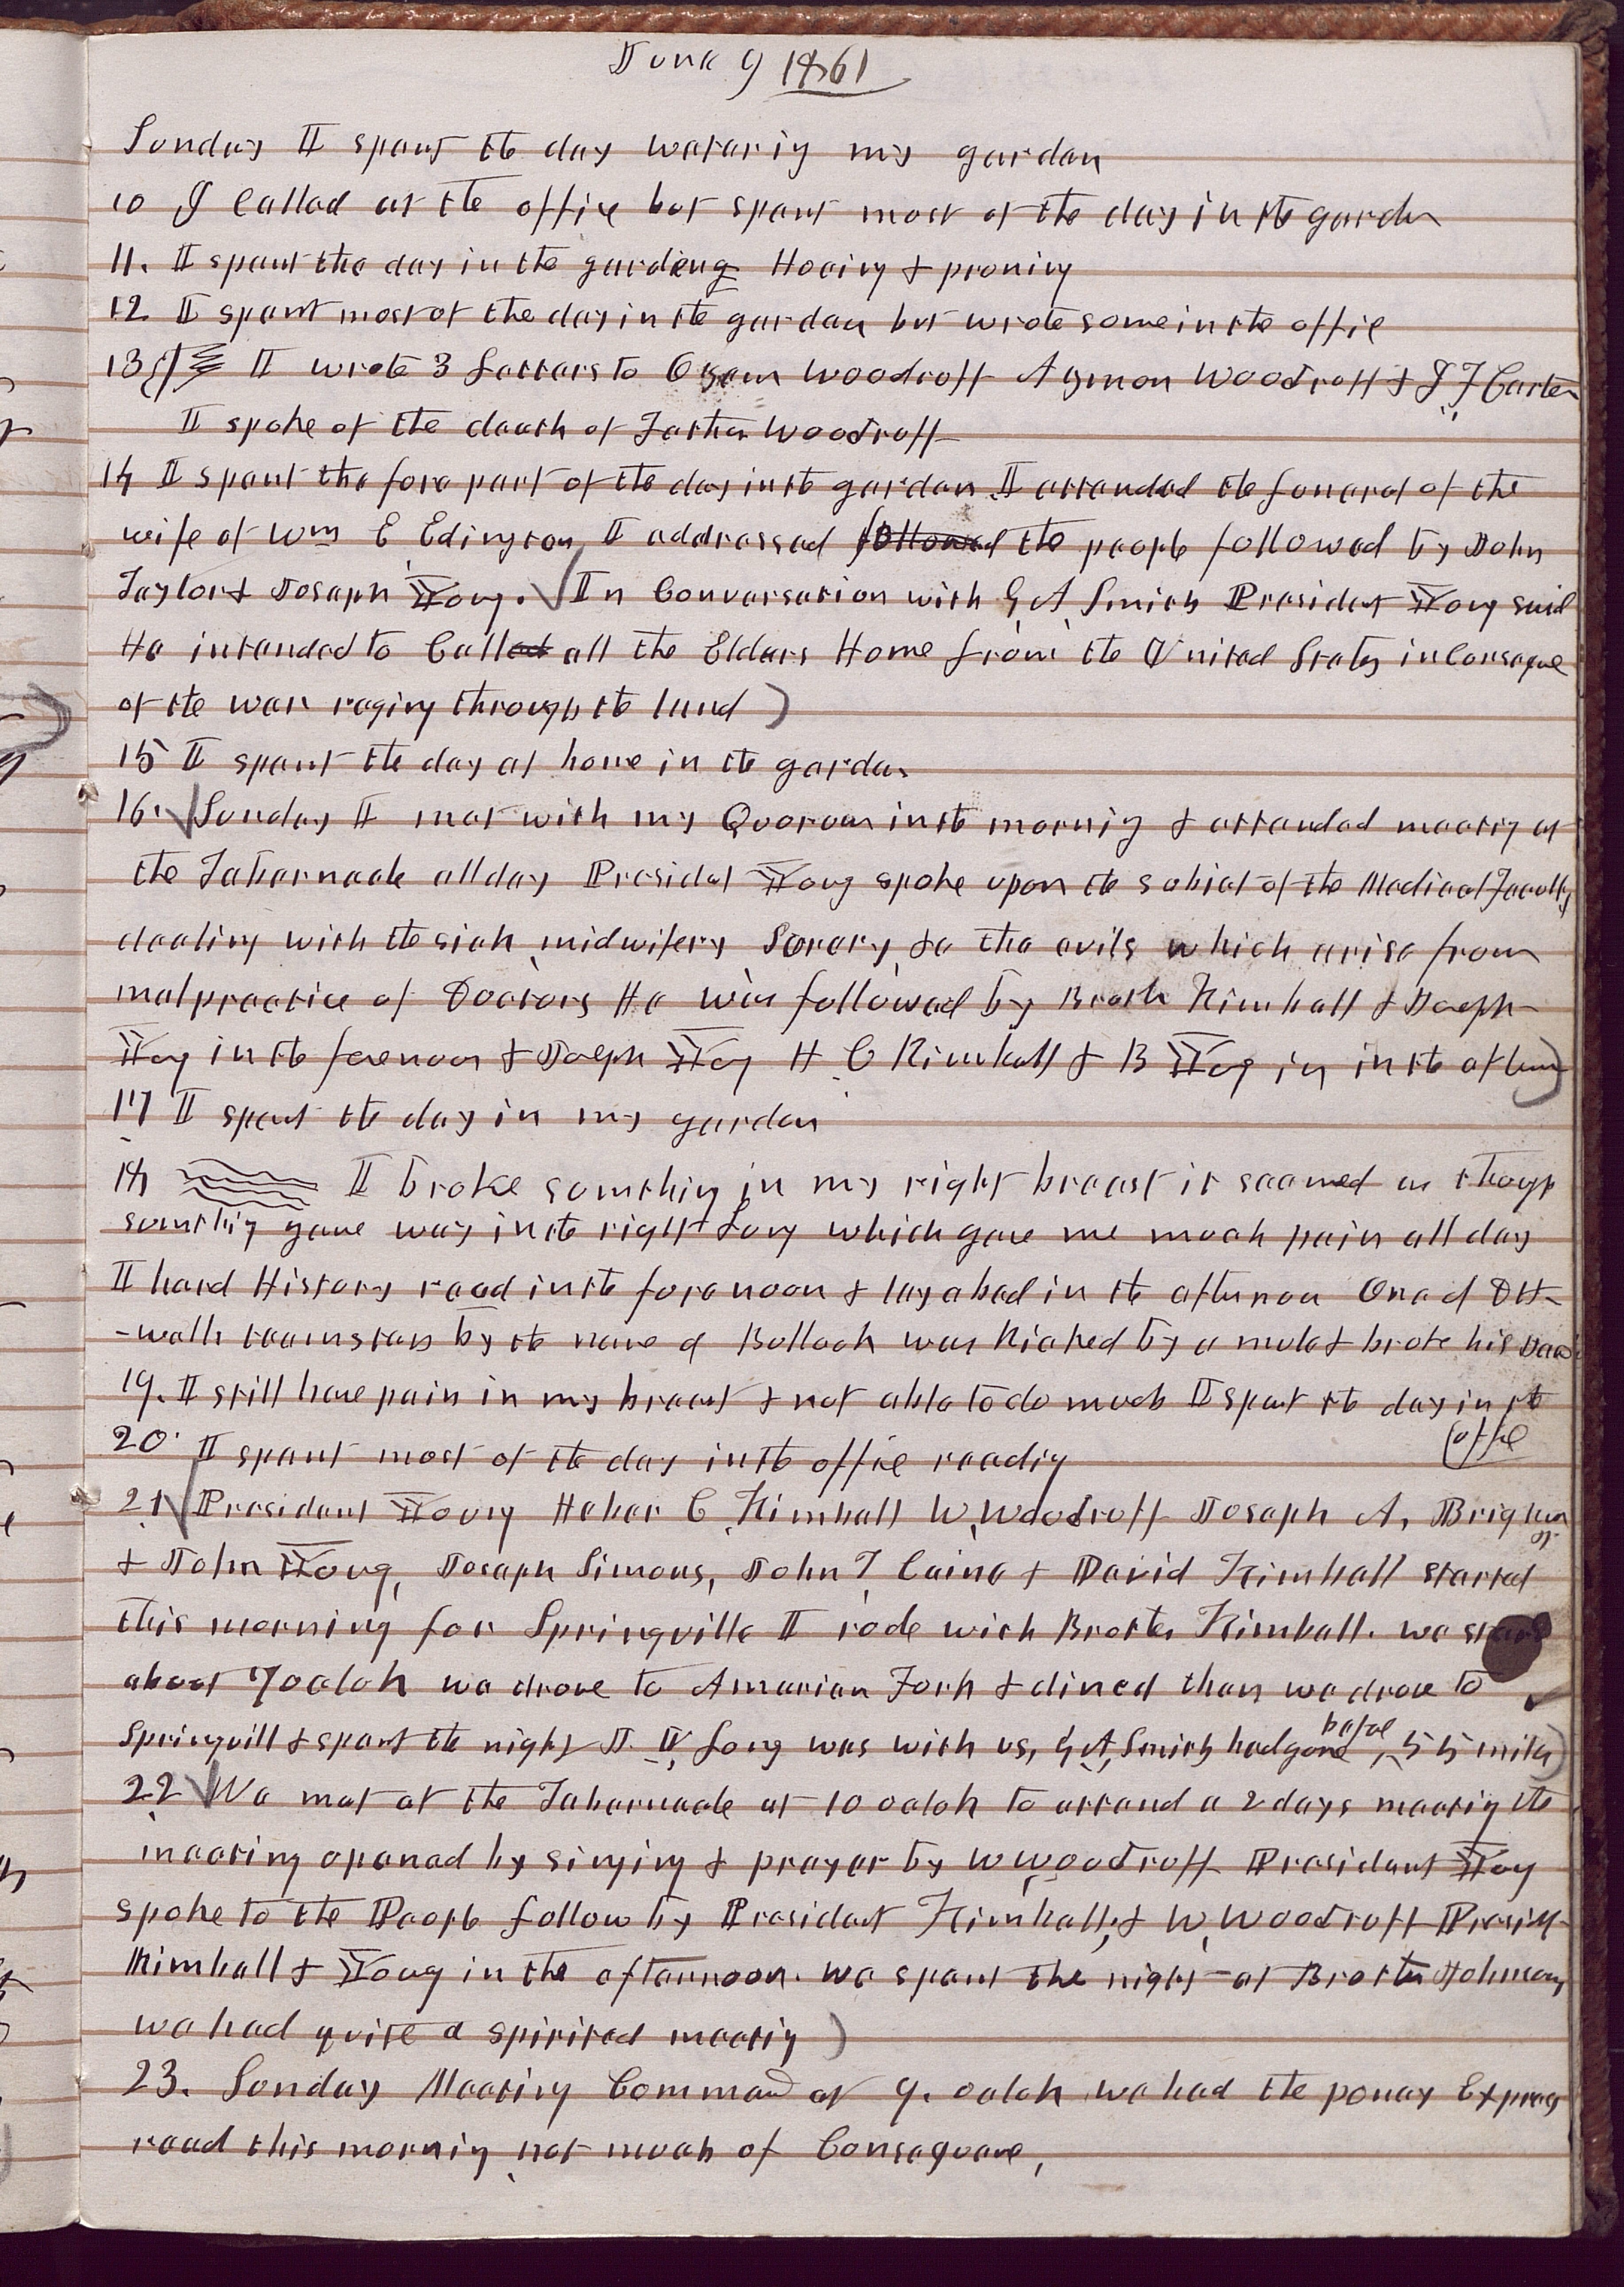 June 9 1861
Sunday I spent the day watering my garden
10 I Called at the office but spent most of the day in the garden
11. I spent the day in the gardeng Hoeing & pruning
12 I spent most of the day in the garden but wrote some in the office
13 I wrote 3 Letters to Ozem Woodruff Azmon Woodruff & I F Carter
I spoke of the death of Father Woodruff
14 I spent the fore part of the day in the garden I attended the funeral of the
wife of Wm E Edington I addressed followed the people followed by John
Taylor & Joseph Young. In Conversation with G, A, Smith President Young said
He intended to Called all the Elders Home from the United States in Conseque
of the war raging through the land)
15 I spent the day at home in the garden
16. Sunday I met with my Quorum in the morning & attended meeting at
the Tabernacle all day President Young spoke upon the subject of the Medical Faculty
dealing with the sick, midwifery Surery, &c the evils which arise from
malpractice of Doctors He was followed by Broth Kimball & Joseph
Young in the forenoon & Joseph Young H. C Kimball & B Young in in the aftern)
17 I spent the day in my garden
18 I broke somthing in my right breast it seemed as though
somthing gave way in the right Lung which gave me much pain all day
I heard History read in the forenoon & lay abed in the afternoon One of
-well teamsters by the name of Bullock was Kicked by a mule & broke his
19. I still have pain in my breast & not able to do much I spent the day in the
(office
20. I spent most of the day in the office reading
21 President Young Heber C, Kimball W, Woodruff Joseph A, Brigham
jr.
& John Young, Joseph Simons, John T, Caine & David Kimball started
this morning for Springville I rode with Brother Kimball. we
about 7 oclok we drove to American Fork & dined then we drove to
Springvill & spent the night J. V, Long was with us, G, A, Smith had gone before, 55 miles)
22 We met at the Tabernacle at 10 oclok to attend a 2 days meeting the
meeting opened by singing & prayer by W Woodruff President Young
spoke to the People follow by President Kimball, & W, Woodruff
Kimball & Young in the afternoon. we spent the night at Brother Johnsons
we had quite a spirited meeting)
23. Sunday Meeting Commend at 9. oclok we had the poney Express
read this morning not much of Consequence,